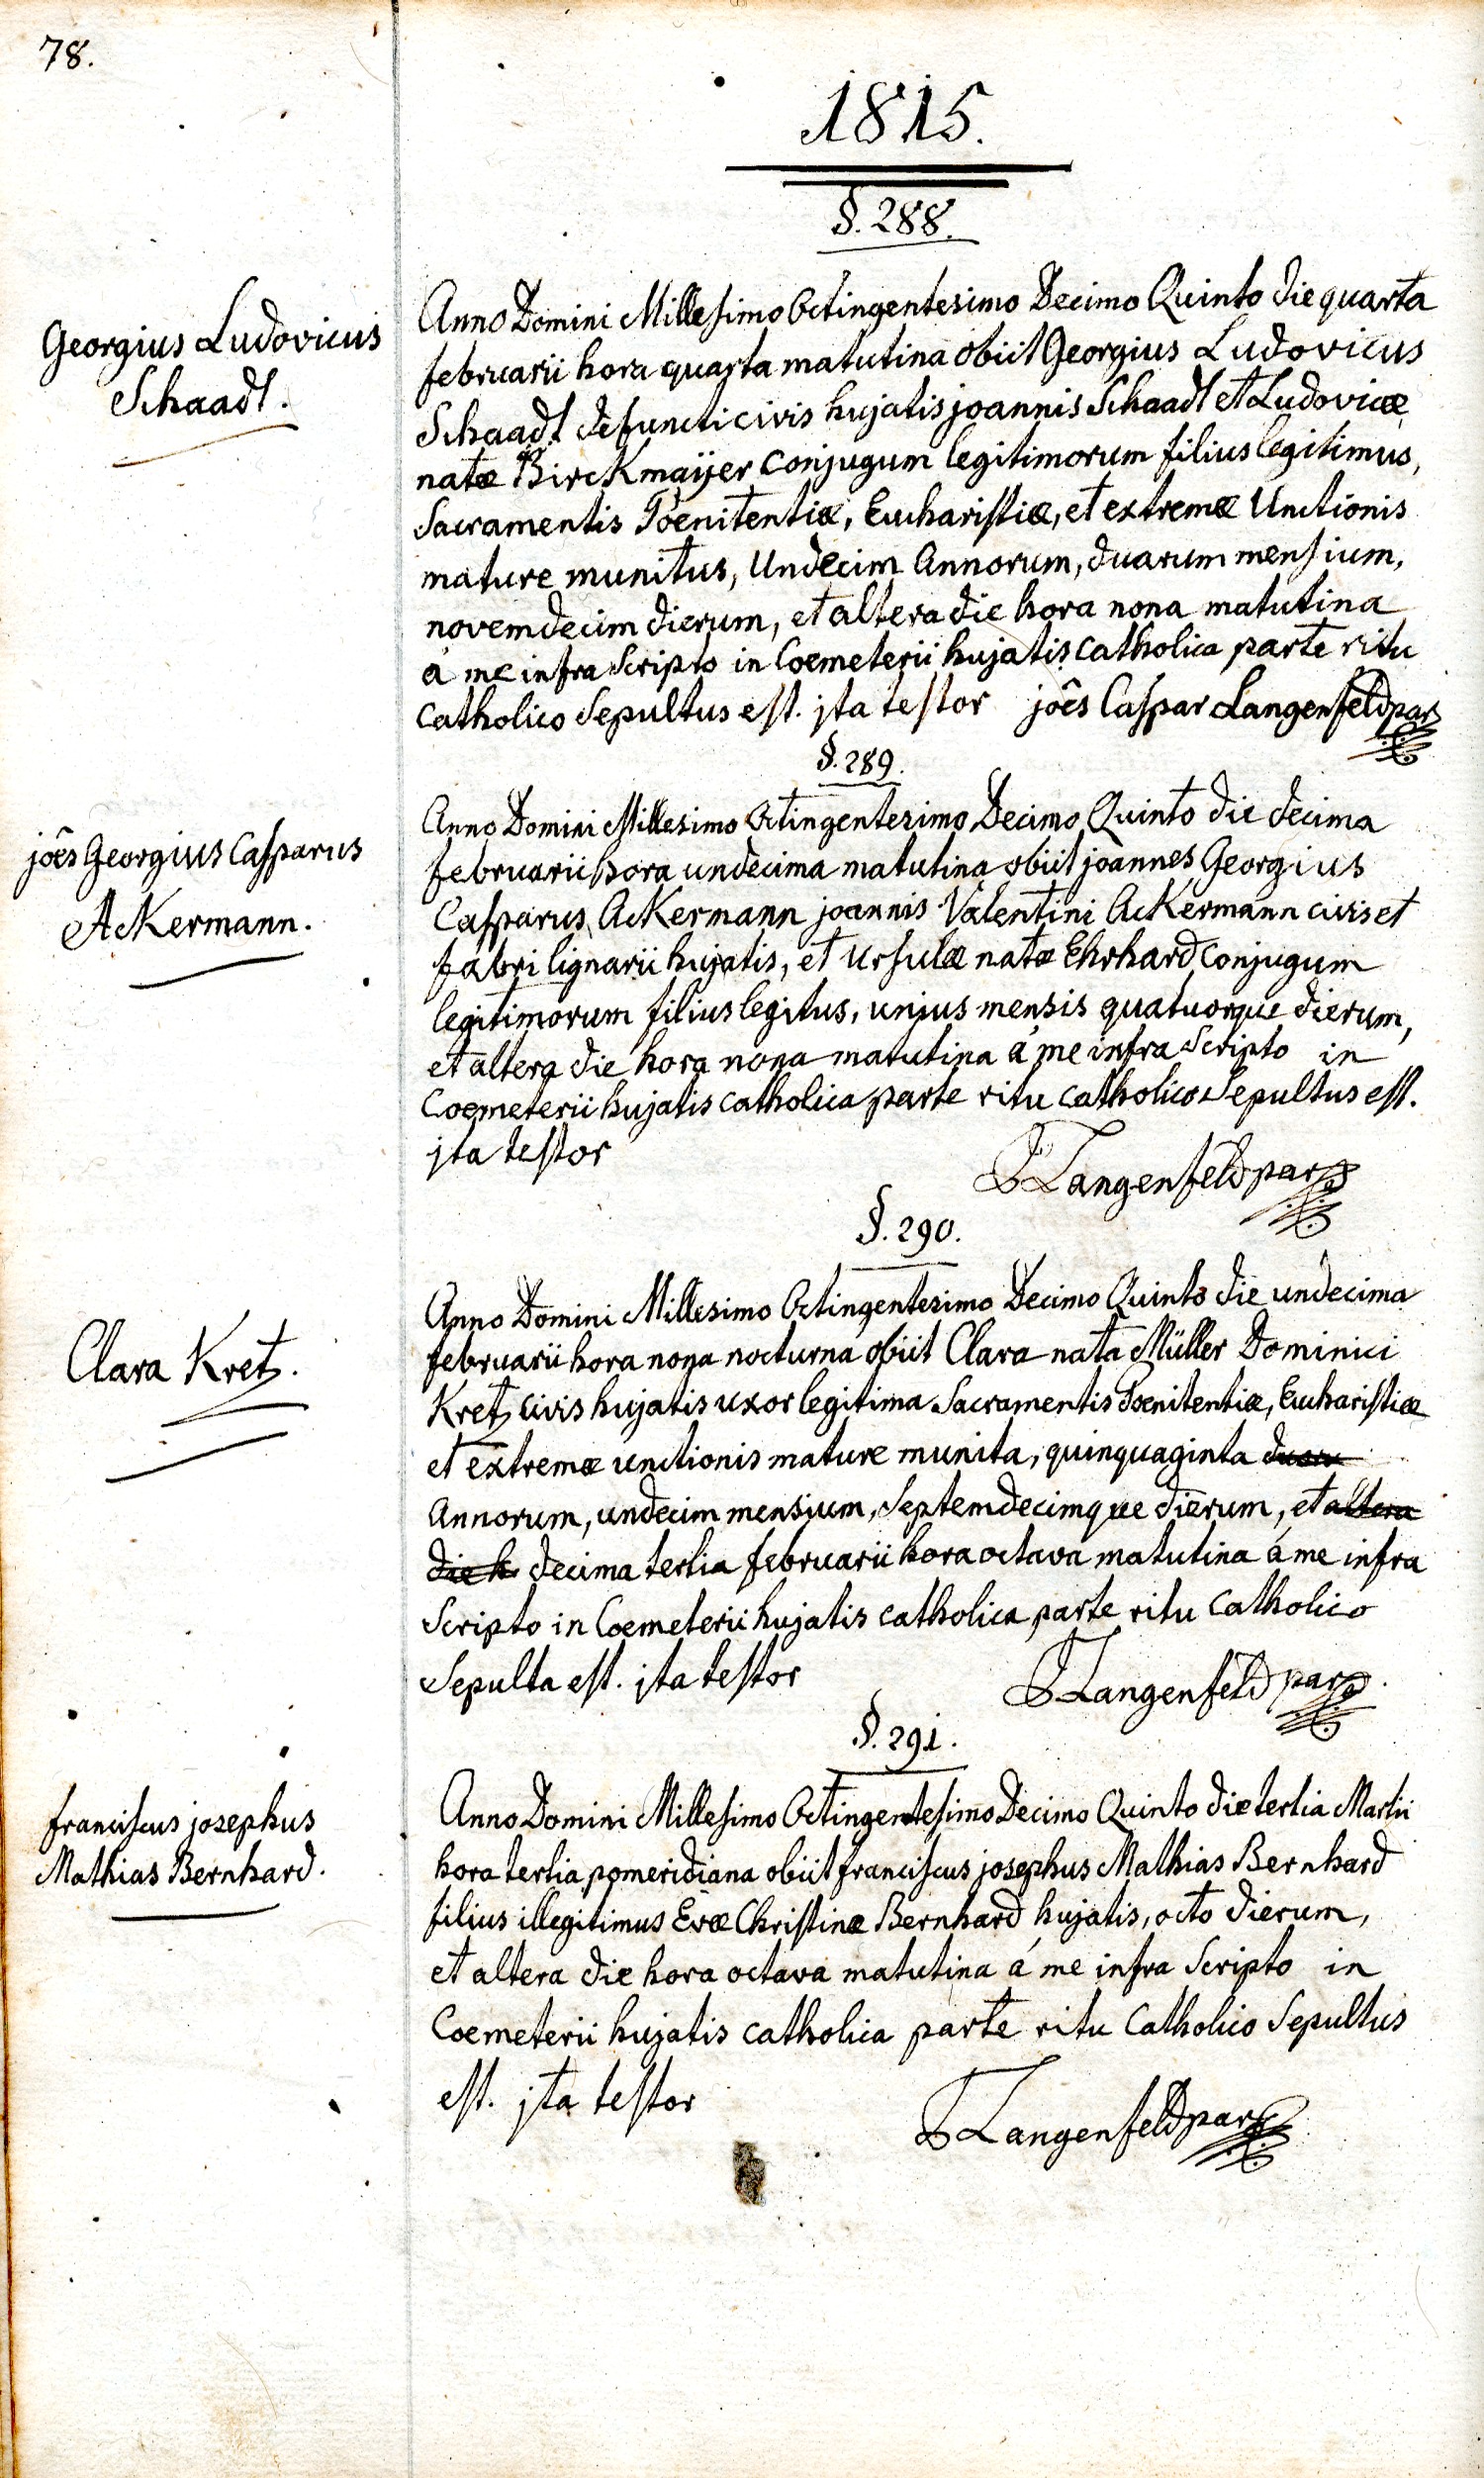 78.
1815.
§. 288.
Georgius Ludovicus
Schaadt.
Anno Domini Millesimo Octingentesimo Decimo Quinto die quarta
februarii hora quarta matutina obiit Georgius Ludovicus
Schaadt defuncti civis hujatis joannis Schaadt et Ludovicæ
natæ Birckmaÿer conjugum legitimorum filius legitimus,
Sacramentis Poenitentiæ, Eucharistiæ, et extremæ Unctionis
mature munitus, Undecim Annorum, duarum mensium,
novemdecim dierum, et altera die hora nona matutina
á me infra Scripto in Coemeterii hujatis catholica parte ritu
catholico Sepultus est. jta testor joês Caspar Langenfeld par
§. 289.
joês Georgius Casparus
Ackermann.
Anno Domini Millesimo Octingentesimo Decimo Quinto die decima
februarii hora undecima matutina obiit joannes Georgius
Casparus Ackermann joannis Valentini Ackermann civis et
fabri lignarii hujatis, et Ursulæ natæ Ehrhard conjugum
legitimorum filius legitus, unius mensis quatuorque dierum,
et altera die hora nona matutina á me infra Scripto in
Coemeterii hujatis catholica parte ritu catholico Sepultus est.
jta testor
Langenfeld par
§. 290.
Clara Kretz.
Anno Domini Millesimo Octingentesimo Decimo Quinto die undecima
februarii hora nona nocturna obiit Clara nata Müller Dominici
Kretz civis hujatis uxor legitima Sacramentis Poenitentiæ, Eucharistiæ
et extremæ unctionis mature munita, quinquaginta duor
Annorum, undecim mensium, Septemdecimque dierum, et altera
die h decima tertia februarii hora octava matutina á me infra
Scripto in Coemeterii hujatis catholica parte ritu Catholico
Sepulta est. jta testor
Langenfeld par
§. 291.
franciscus josephus
Mathias Bernhard.
Anno Domini Millesimo Octingentesimo Decimo Quinto die tertia Martii
hora tertia pomeridiana obiit franciscus josephus Mathias Bernhard
filius illegitimus Evæ Christinæ Bernhard hujatis, octo dierum,
et altera die hora octava matutina á me infra Scripto in
Coemeterii hujatis catholica parte ritu Catholico Sepultus
est. jta testor
Langenfeld par